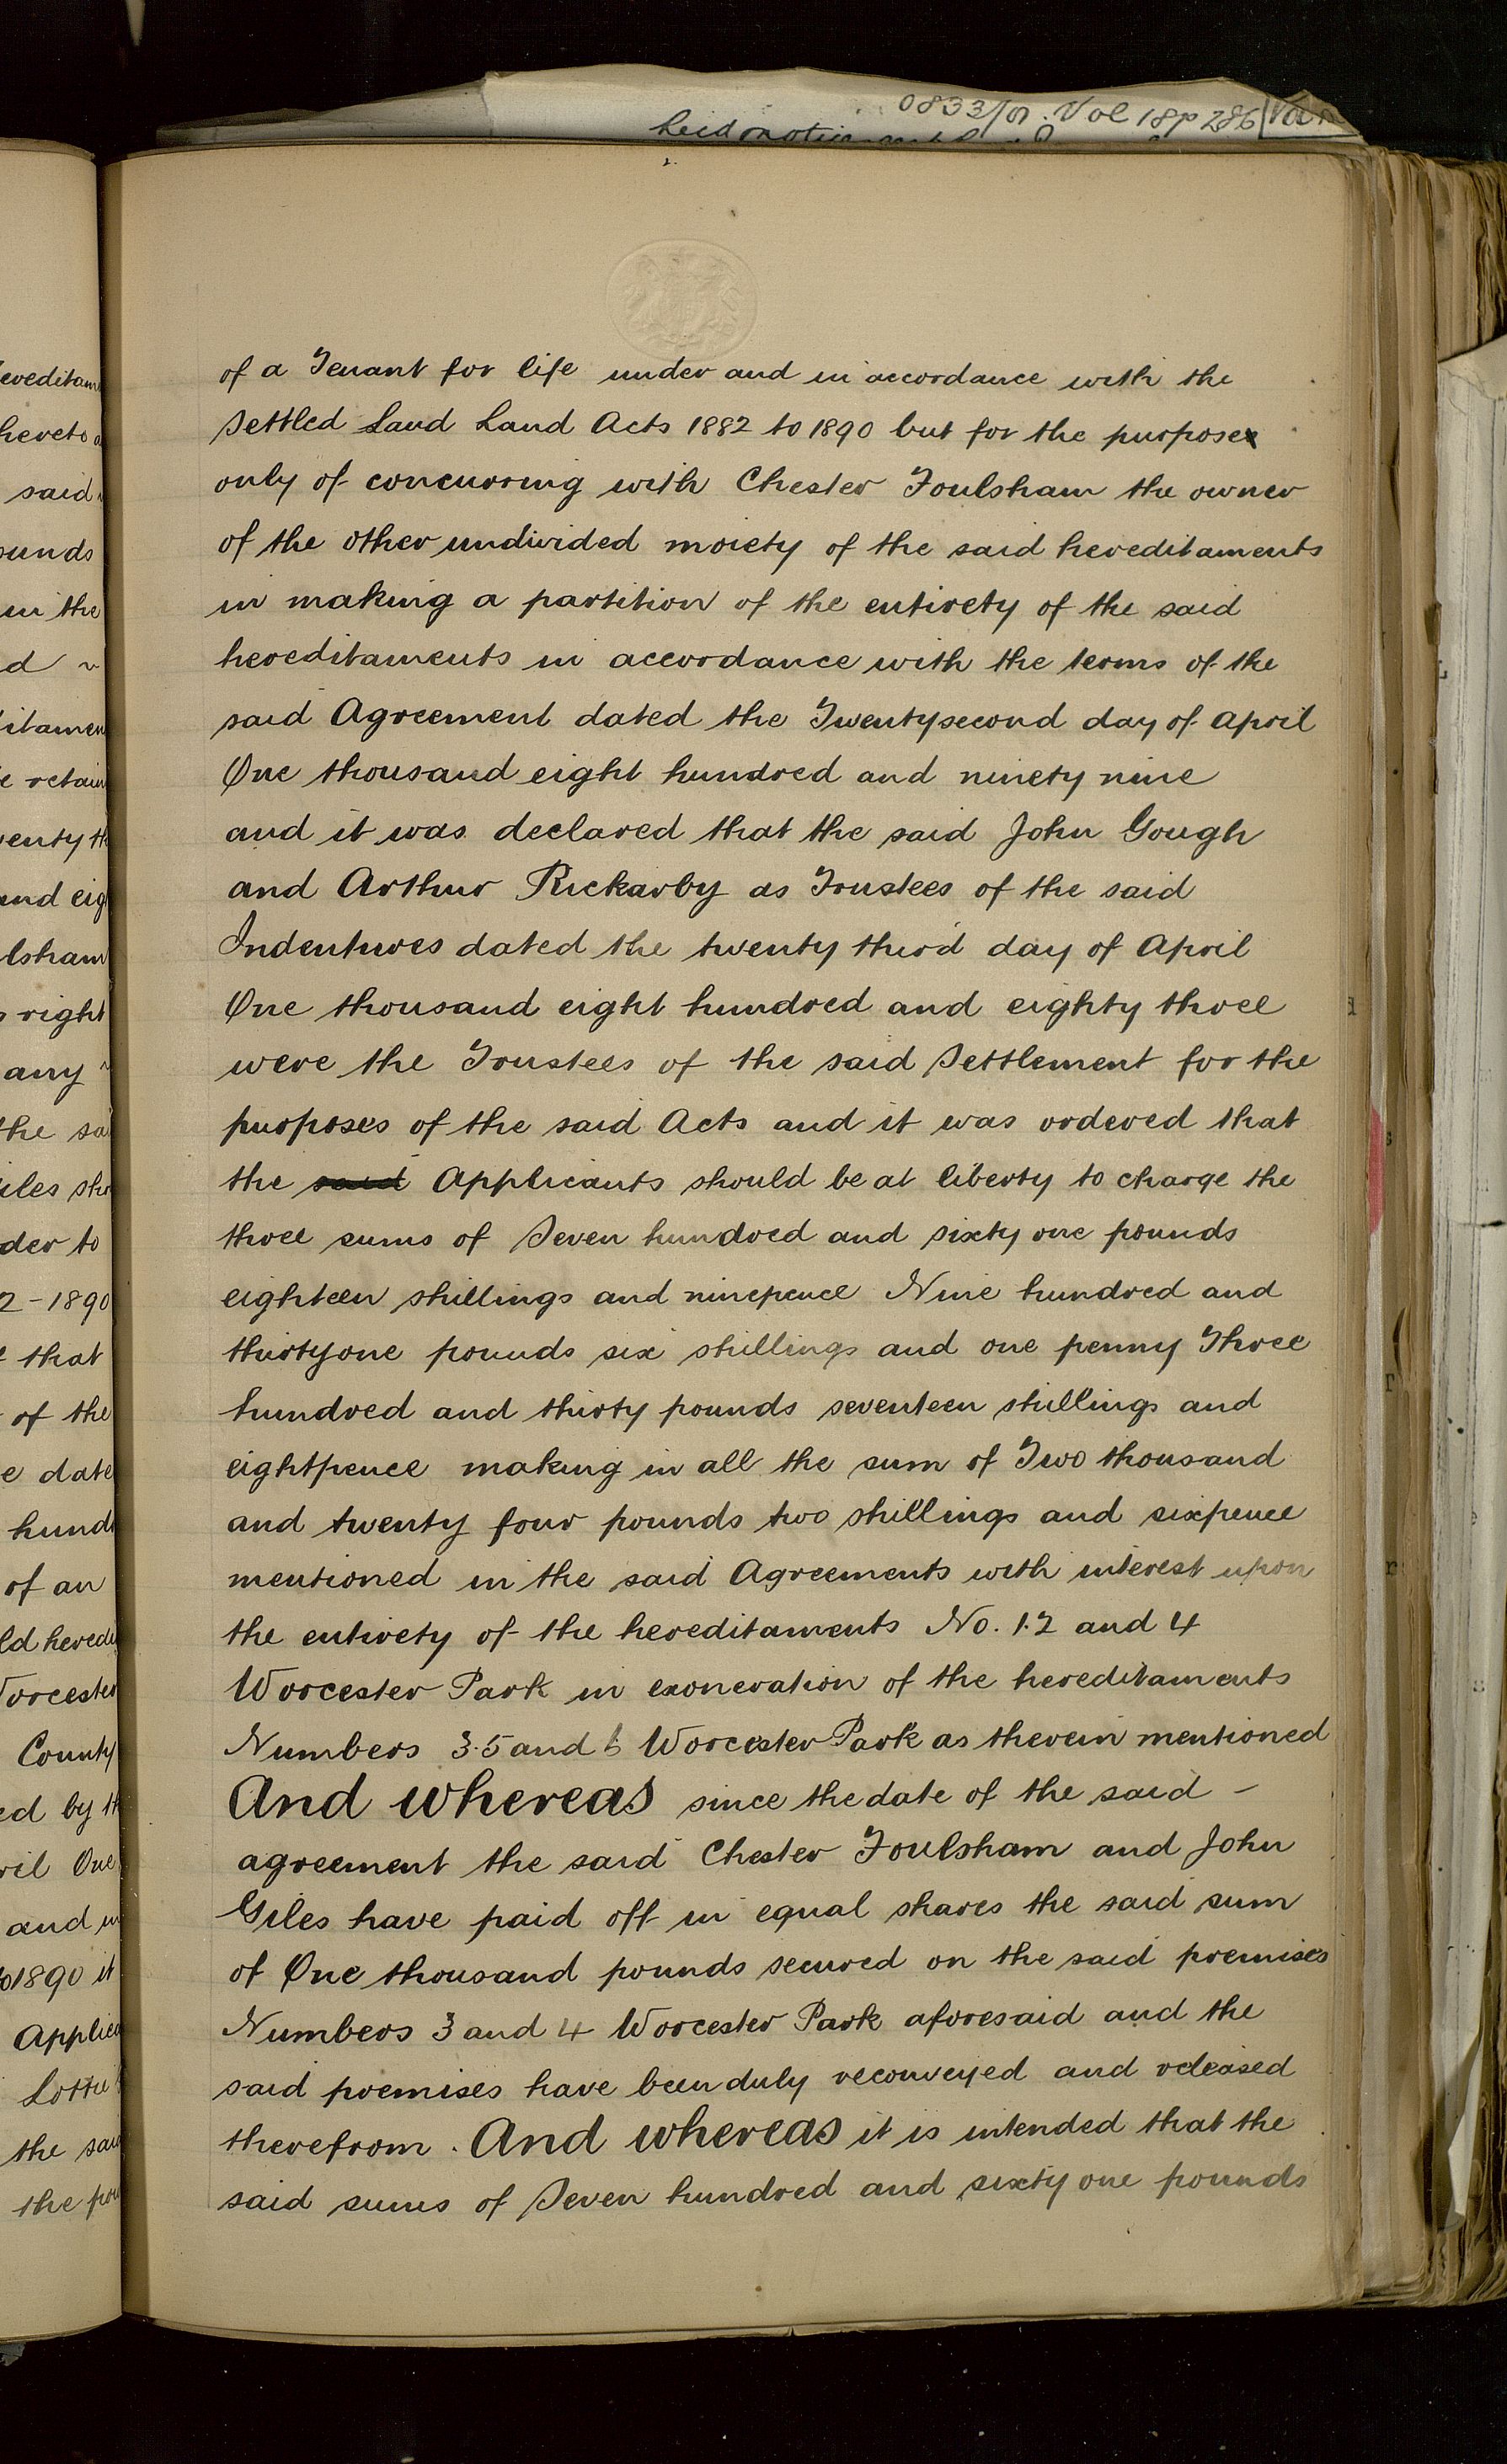 0833/01. Vol 18p 286
of a Tenant for life under and in accordance with the
Settled Land Land Acts 1882 to 1890 but for the purpose
only of concurring with Chester Foulsham the owner
of the other undivided moiety of the said hereditaments
in making a partition of the entirety of the said
hereditaments in accordance with the terms of the
said Agreement dated the Twentysecond day of April
One thousand eight hundred and ninety nine
and it was declared that the said John Gough
and Arthur Rickarby as Trustees of the said
Indentures dated the twenty third day of April
One thousand eight hundred and eighty three
were the Trustees of the said Settlement for the
purposes of the said Acts and it was ordered that
the said Applicants should be at liberty to charge the
three sums of Seven hundred and sixty one pounds
eighteen shillings and ninepence Nine hundred and
thirtyone pounds six shillings and one penny Three
hundred and thirty pounds seventeen shillings and
eightpence making in all the sum of Two thousand
and twenty four pounds two shillings and sixpence
mentioned in the said Agreements with interest upon
the entirety of the hereditaments No. 1.2 and 4
Worcester Park in exoneration of the hereditaments
Numbers 3.5 and 6 Worcester Park as therein mentioned
And whereas since the date of the said -
agreement the said Chester Foulsham and John
Giles have paid off in equal shares the said sum
of One thousand pounds secured on the said premises
Numbers 3 and 4 Worcester Park aforesaid and the
said premises have been duly reconveyed and released
therefrom. And whereas it is intended that the
said sums of Seven hundred and sixty one pounds